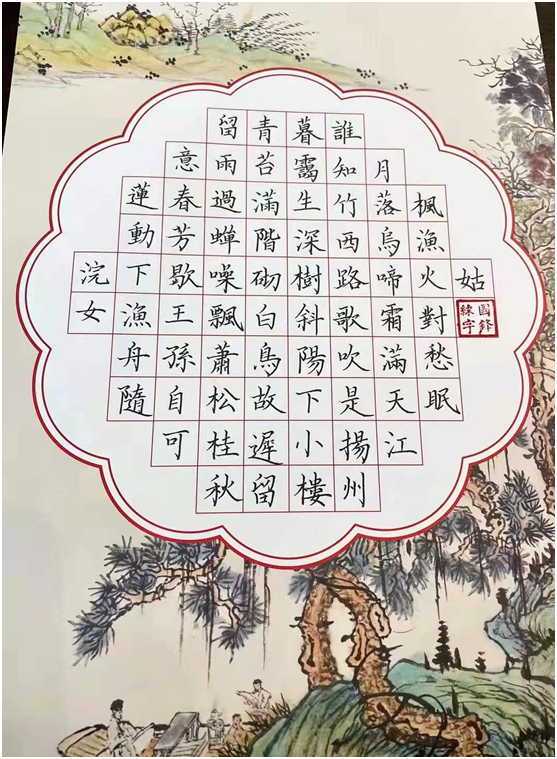 浣女
蓮動下漁舟隨
意春芳歇王孫自可
留雨過蟬噪飄蕭松桂秋
青苔滿階砌白鳥故遲留
暮靄生深樹斜陽下小樓
誰知竹西路歌吹是揚州
月落烏啼霜滿天江
楓漁火對愁眠
姑
國鋒練字